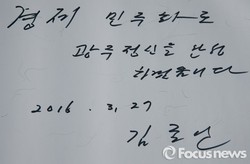 경제 민주화로
광주정신을 완성
하겠습니다
2016. 3. 27
김종인
Focusnews